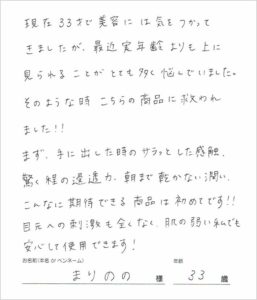 現在33才で美容には気をつかって
きましたが、最近実年齢よりも上に
見られることがとても多く悩んでいました。
そのような時こちらの商品に救われ
ました!!
まず、手に出した時のサラッとした感触、
驚く程の浸透力、朝まで乾かない潤い、
こんなに期待できる商品は初めてです!!
目元への刺激も全くなく、肌の弱い私でも
安心して使用できます!
お名前(本名 or ペンネーム) 年齢
まりのの 様 33 歳